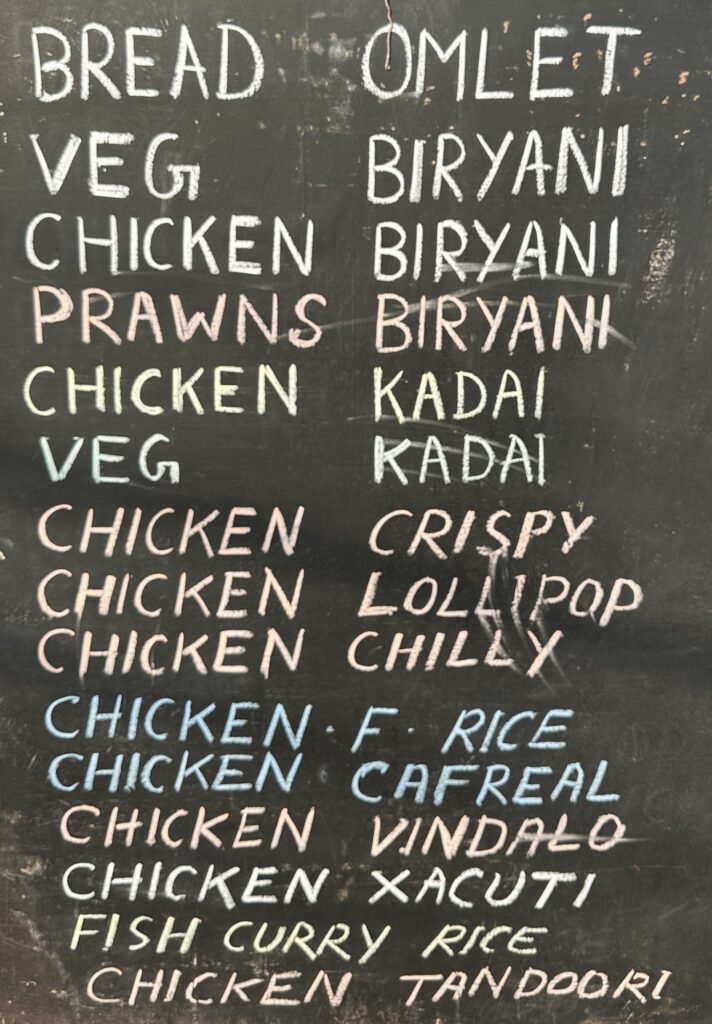 BREAD OMLET
VEG BIRYANI
CHICKEN BIRYANI
PRAWNS BIRYANI
CHICKEN KADAI
VEG KADAI
CHICKEN CRISPY
CHICKEN LOLLIPOP
CHICKEN CHILLY
CHICKEN · F · RICE
CHICKEN CAFREAL
CHICKEN VINDALO
CHICKEN XACUTI
FISH CURRY RICE
CHICKEN TANDOORI